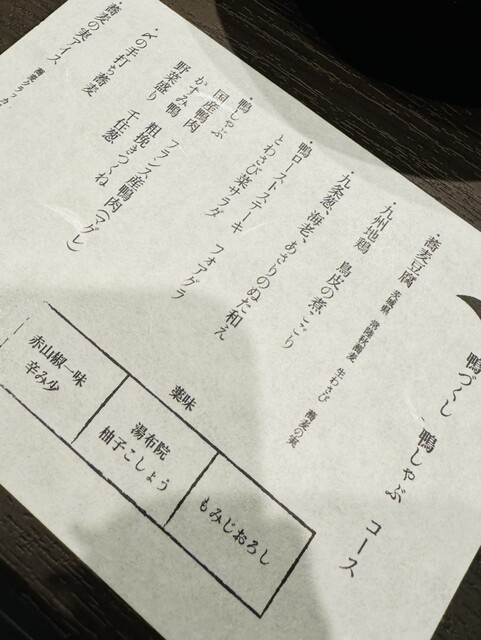 鴨づくし 鴨しゃぶ コース
・蕎麦豆腐 茨城県 常陸秋蕎麦 生わさび 蕎麦の実
・九州地鶏 鳥皮の煮こごり
・九条葱、海老、あさりのぬた和え
・鴨ローストステーキ フォアグラ
とわさび菜サラダ
・鴨しゃぶ
国産鴨肉 フランス産鴨肉(マグレ)
かすみ鴨 粗挽きつくね
野菜盛り 千住葱
・〆の手打ち蕎麦
・蕎麦の実アイス 蕎麦クラッカ
薬味
もみじおろし
湯布院
柚子こしょう
赤山椒一味
辛み少